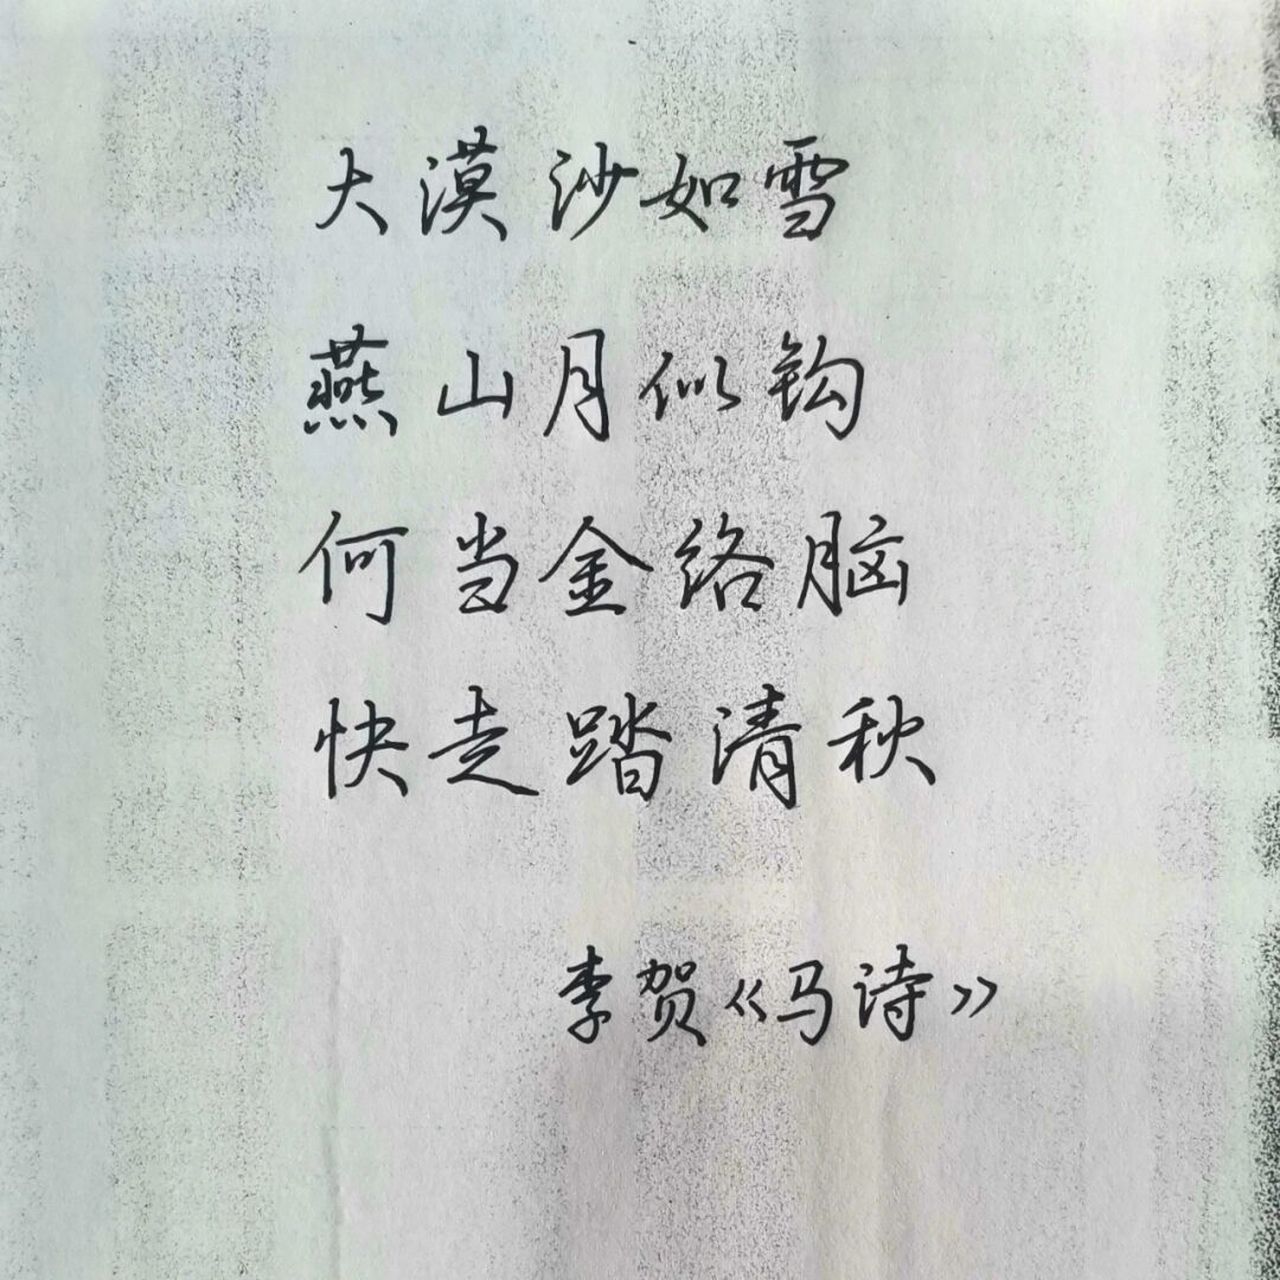 大漠沙如雪
燕山月似钩
何当金络脑
快走踏清秋
李贺《马诗》